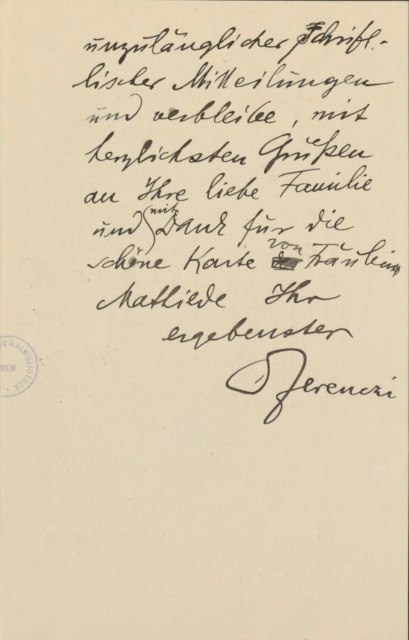 unzulänglicher Schrift-
licher Mitteilungen
und verbleibe, mit
herzlichsten Grüßen
an Ihre liebe Familie
und mit Dank für die
schöne Karte von Fräulein
Mathilde Ihr
ergebenster
Ferenczi
WIEN